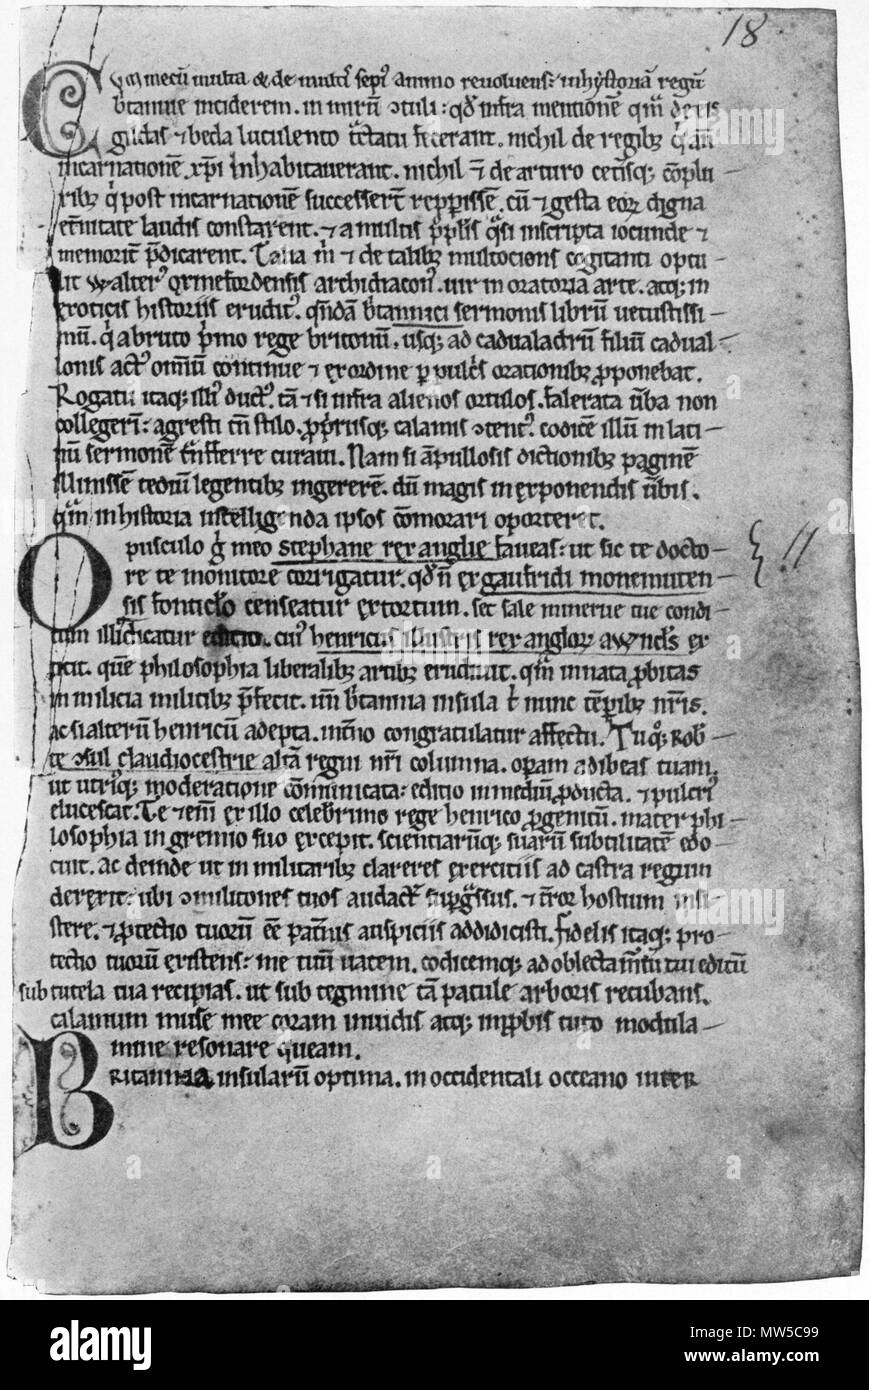 18
Cum mecū multa & de multis sepi᷒ animo reuoluens: in hystoriā regū
britannie inciderem. in mirū ↄtuli: qd̄ infra mentionē qm̄ de eis
gildas ⁊ beda luculento tͣctatu fecerant. nichil de regibꝫ qͥ an̄
incarnationē xp̄i inhabitauerant. nichil ⁊̄ de arturo cet̄isqꝫ cōplu-
ribꝫ qͥ post incarnationē successert̄ repperissē. cū ⁊ gesta eoꝝ digna
et̄nitate laudis constarent. ⁊ a multis ppl̄is qͣsi inscripta iocunde ⁊
memorit̄ p̄dicarent. Talia m̄ ⁊ de talibꝫ multociens cogitanti optu-
lit Walter᷒ oxinefordensis archidiacon᷒. uir in oratoria arte. atqꝫ in
exoticis historiis erudit᷒. qn̄dā b̄tannici sermonis librū uetustissi-
mū. qͥ a bruto pͥmo rege britonū. usqꝫ ad cadualadrū filiū cadual-
lonis act᷒ om̄iū continue ⁊ ex ordine ꝑ pulcͥs orationibꝫ ꝓponebat.
Rogatu itaqꝫ illi᷒ duct᷒. tā ⁊ si infra alienos ortulos. falerata ūba non
collegerī: agresti tn̄ stilo. ꝓpͥisqꝫ calamis ↄtent᷒. codicē illū in lati-
nū sermonē tn̄sferre curaui. Nam si āpullosis dictionibꝫ paginē
illinissē tediū legentibꝫ ingererē. dū magis in exponendis ūbis.
qm̄ in historia intelligenda ipsos cōmorari oporteret.
Opusculo gͥ meo stephane rex anglie faueas: ut sic te docto-
re te monitore corrigatur. qd̄ n̄ ex gaufridi monemuten-
sis fonticlo censeatur extortum. set sale minerue tue condi-
tum illi᷒ dicatur editio. cui᷒ henricus illustris rex angloꝝ auuncl̄s ex-
titit. quē philosophia liberalibꝫ artibꝫ erudiuit. qm̄ innata ꝓbitas
in milicia militibꝫ p̄fecit. un̄ b̄tannia insula tͥ nunc tēpibꝫ nr̄is.
ac si alterū henricū adepta. int̄no congratulatur affectu. Tu qꝫ Rob-
te ↄsul claudiocestrie altā regni nr̄i columna. operam adibeas tuam.
ut utriusqꝫ moderatione cōmunicata: editio in mediū ꝓducta. ⁊ pulcri᷒
elucescat. Te ⁊ enī ex illo celebrimo rege henrico ꝓgenitū. mater phi-
losophia in gremio suo excepit. scientiarūqꝫ suarū subtilitatē edo-
cuit. ac deinde ut in militaribꝫ clareres exercitiis ad castra regum
derexit: ubi ↄmilitones tuos audact᷒ sup̄gͣssus. ⁊ t̄ror hostium insi-
stere. ⁊ ꝓtectio tuorū eē pat̄nis auspiciis addidicisti. Fidelis itaqꝫ pro-
tectio tuorū existens: me tuū uatem. codicemqꝫ ad oblectamētū tui editū
sub tutela tua recipias. ut sub tegmine tā patule arboris recubans.
calamum muse mee coram inuidis atqꝫ inꝓbis tuto modula-
mine resonare queam.
Britannia insularū optima. in occidentali occeano inter
alamy
Image ID: MW5C99
www.alamy.com